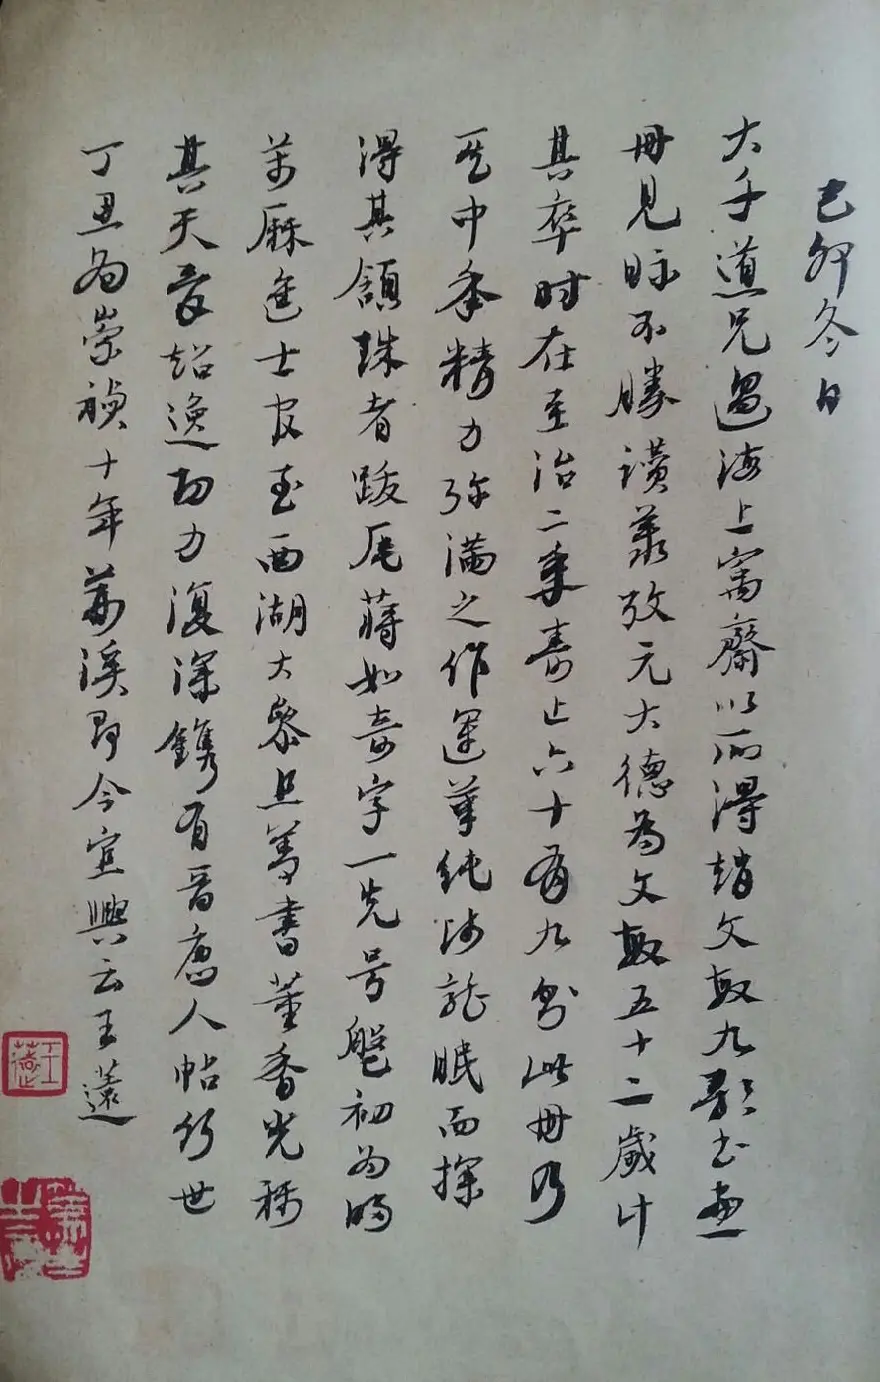 己卯冬日
大千道兄過海上寓齋以所得趙文敏九歌書畫
冊見眎不勝讚羨攷元大德為文敏五十二歲計
其卒時在至治二年壽止六十有九則此冊乃
其中年精力弥滿之作運筆純師龍眠而探
得其頷珠者跋尾蔣如奇字一先号盤初为明
萬厤進士官至西湖大參且善書董香光稱
其天資超逸功力復深鐫有晉唐人帖行世
丁丑为崇禎十年荊溪即今宜興云王薳
王薳